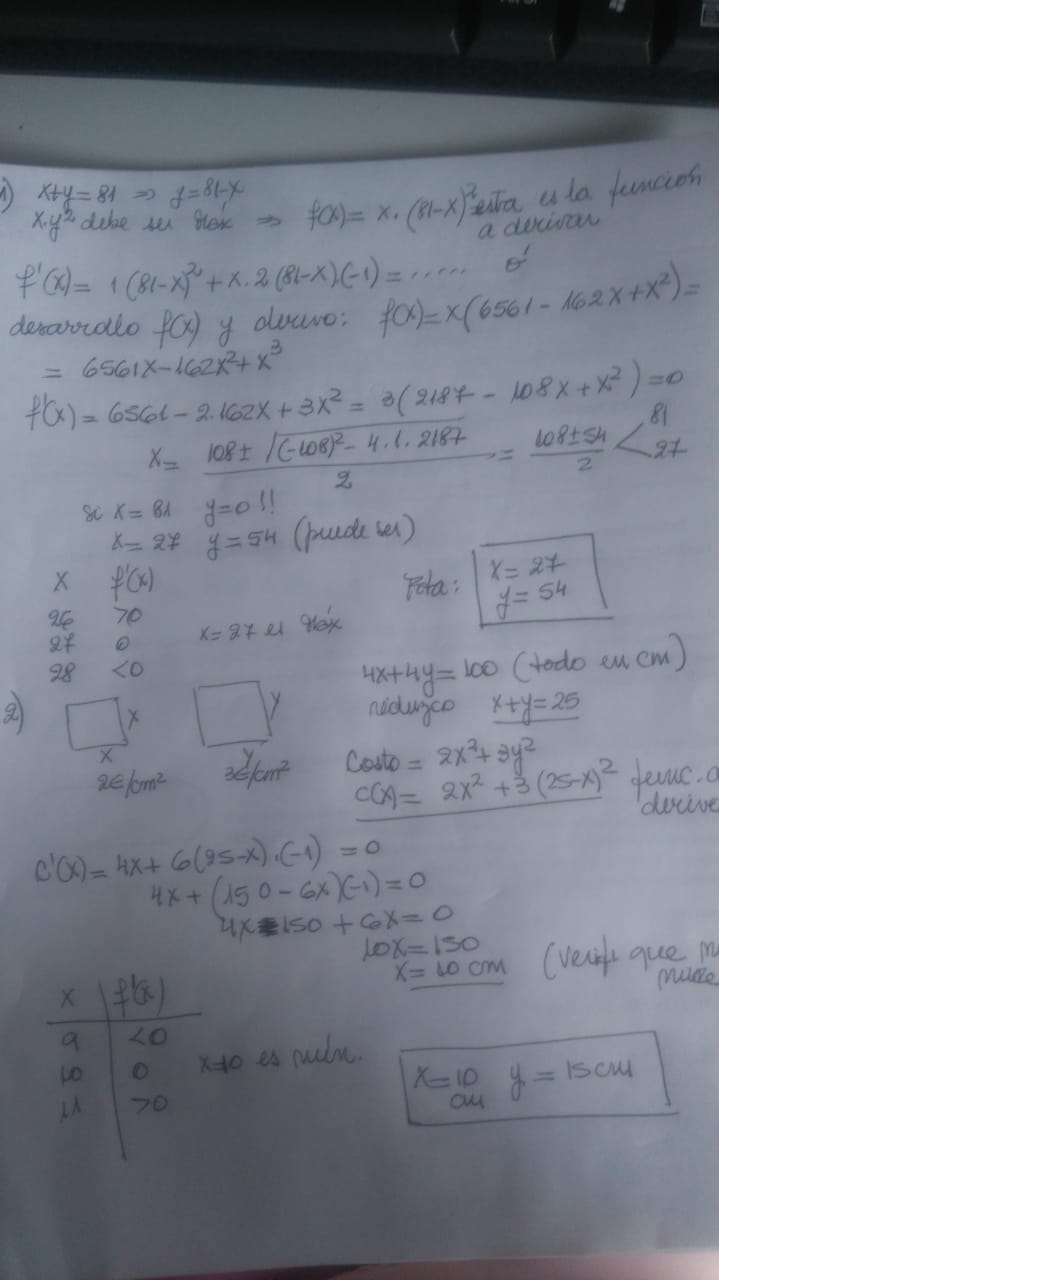 1) x+y=81 ⇒ y=81-x
x.y² debe ser máx ⇒ f(x)= x.(81-x)² esta es la función
a derivar
f'(x)= 1(81-x)²+x.2(81-x).(-1)=...... ó
desarrollo f(x) y derivo: f(x)=x(6561-162x+x²)=
= 6561x-162x²+x³
f'(x)=6561-2.162x+3x²= 3(2187-108x+x²)=0
x= 108±√(-108)²-4.1.2187 / 2 = 108±54 / 2 < 81
27
si x=81 y=0!!
x=27 y=54 (puede ser)
x f'(x)
26 >0
27 0 x=27 es máx
28 <0
Rta: x=27
y=54
2) x y
x y
2€/cm² 3€/cm²
4x+4y=100 (todo en cm)
reduzco x+y=25
Costo= 2x²+3y²
C(x)= 2x²+3(25-x)² func. a
C'(x)=4x+6(25-x).(-1)=0
4x+(150-6x)(-1)=0
4x-150+6x=0
10x=150
x=10 cm (verif que
x f'(x)
9 <0
10 0 x=10 es mín.
11 >0
x=10 y=15cm
cm